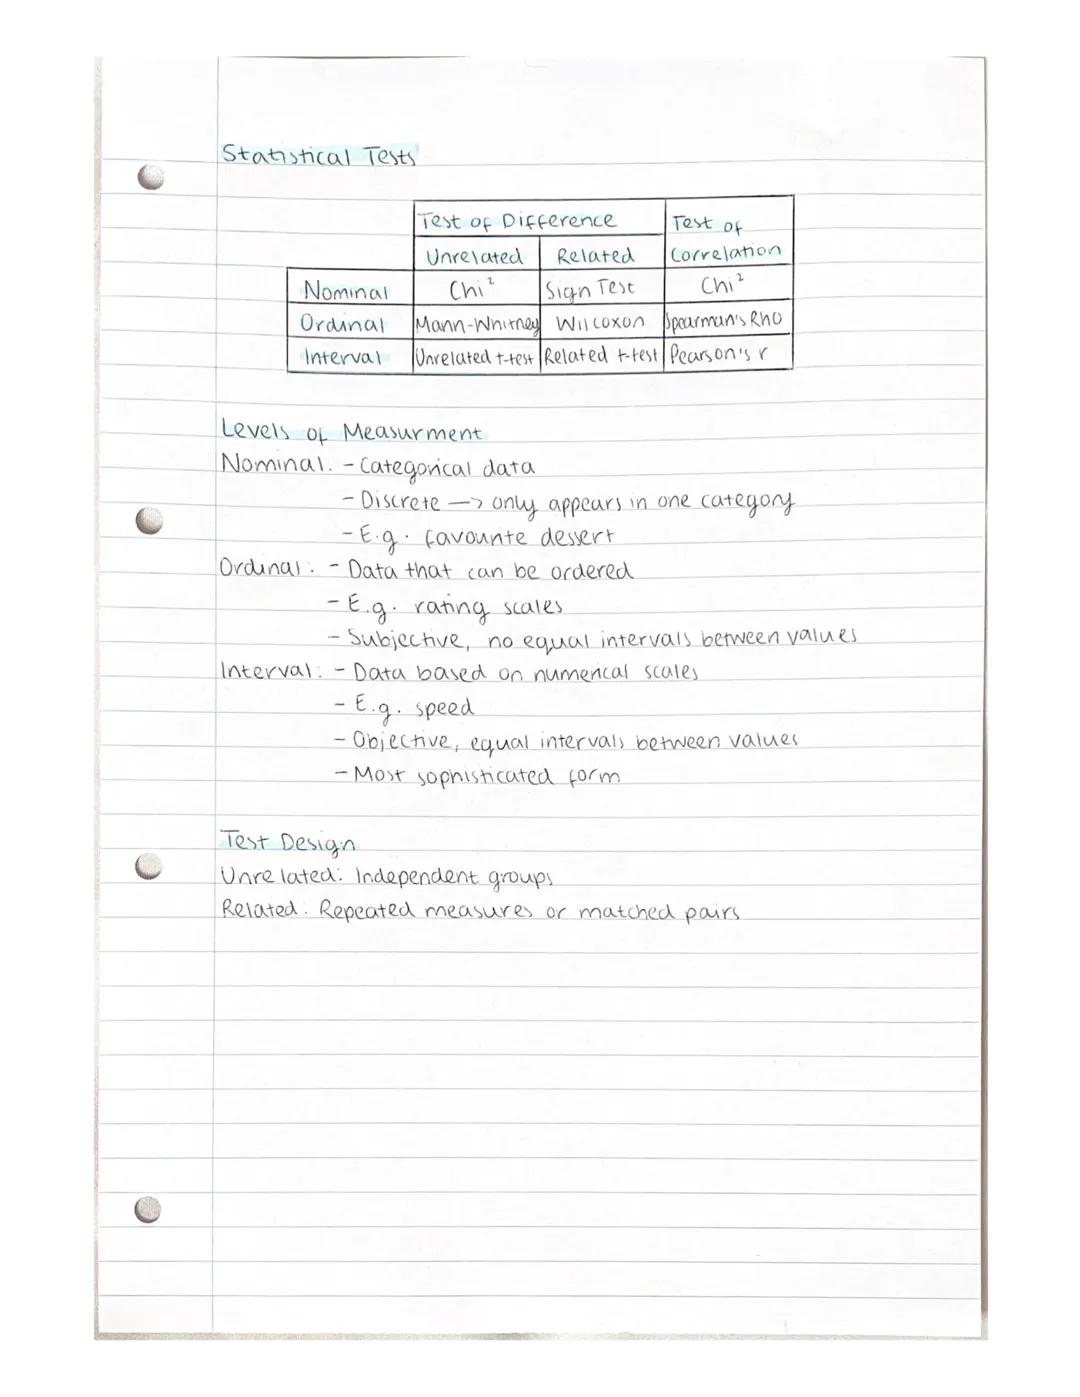 Statistical Tests
Test of Difference Test of
Unrelated Related Correlation
Nominal Chi² Sign Test Chi²
Ordinal Mann-Whitney Wilcoxon Spearman's Rho
Interval Unrelated t-test Related t-test Pearson's r
Levels of Measurment
Nominal: - Categorical data
- Discrete —> only appears in one category
- E.g. favourite dessert
Ordinal: - Data that can be ordered
- E.g. rating scales
- Subjective, no equal intervals between values
Interval: - Data based on numerical scales
- E.g. speed
- Objective, equal intervals between values
- Most sophisticated form
Test Design
Unrelated: Independent groups
Related: Repeated measures or matched pairs